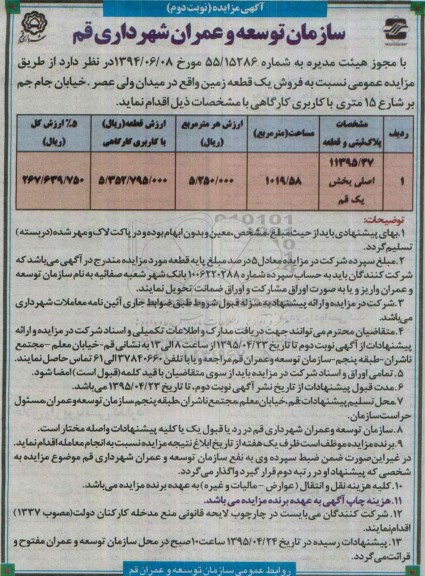 آگهی مزایده (نوبت دوم)
سازمان توسعه و عمران شهرداری قم
با مجوز هیئت مدیره به شماره ۵۵/۱۵۲۸۶ مورخ ۱۳۹۴/۰۶/۰۸ در نظر دارد از طریق
مزایده عمومی نسبت به فروش یک قطعه زمین واقع در میدان ولی عصر . خیابان جام جم
بر شارع ۱۵ متری با کاربری کارگاهی با مشخصات ذیل اقدام نماید.
ردیف
مشخصات پلاک ثبتی و قطعه
مساحت (مترمربع)
ارزش هر مترمربع (ریال)
ارزش قطعه (ریال) با کاربری کارگاهی
۵٪ ارزش کل (ریال)
۱
۱۱۳۹۵/۳۷ اصلی بخش یک قم
۱۰۱۹/۵۸
۵/۲۵۰/۰۰۰
۵/۳۵۲/۷۹۵/۰۰۰
۲۶۷/۶۳۹/۷۵۰
توضیحات:
۱. بهای پیشنهادی باید از حیث مبلغ مشخص، معین و بدون ابهام بوده و در پاکت لاک و مهر شده (دربسته)
تسلیم گردد.
۲. مبلغ سپرده شرکت در مزایده معادل ۵ درصد مبلغ پایه قطعه مورد مزایده مندرج در آگهی می باشد که
شرکت کنندگان باید به حساب سپرده شماره ۱۰۰۶۲۲۰۲۸۸ بانک شهر شعبه صفائیه به نام سازمان توسعه
و عمران واریز و یا به صورت اوراق مشارکت و اوراق ضمانت تحویل نمایند.
۳. شرکت در مزایده و ارائه پیشنهاد به منزله قبول شروط طبق ضوابط جاری آئین نامه معاملات شهرداری
می باشد.
۴. متقاضیان محترم می توانند جهت دریافت مدارک و اطلاعات تکمیلی و اسناد شرکت در مزایده و ارائه
پیشنهادات از آگهی نوبت دوم تا تاریخ ۱۳۹۵/۰۴/۲۳ از ساعت ۸ الی ۱۳ به نشانی قم - خیابان معلم - مجتمع
ناشران - طبقه پنجم - سازمان توسعه و عمران قم مراجعه و یا با تلفن ۳۷۸۴۰۶۶۰ الی ۶۱ تماس حاصل نمایند.
۵. تمامی اوراق و اسناد شرکت در مزایده باید از سوی متقاضیان با قید کلمه (قبول است) امضا شود.
۶. مدت قبول پیشنهادات از تاریخ نشر آگهی نوبت دوم، تا تاریخ ۱۳۹۵/۰۴/۲۳ می باشد.
۷. محل تسلیم پیشنهادات قم، خیابان معلم، مجتمع ناشران، طبقه پنجم، سازمان توسعه و عمران مسئول
حراست سازمان.
۸. سازمان توسعه و عمران شهرداری قم در رد یا قبول یک یا کلیه پیشنهادات واصله مختار است.
۹. برنده مزایده موظف است ظرف یک هفته از تاریخ ابلاغ نتیجه مزایده نسبت به انجام معامله اقدام نماید.
در غیر این صورت ضمن ضبط سپرده وی به نفع سازمان توسعه و عمران شهرداری قم موضوع مزایده به
شخصی که پیشنهاد او در رتبه دوم قرار گیرد واگذار می گردد.
۱۰. کلیه هزینه نقل و انتقال (عوارض - مالیات و غیره) به عهده برنده مزایده می باشد.
۱۱. هزینه چاپ آگهی به عهده برنده مزایده می باشد.
۱۲. شرکت کنندگان می بایست در چارچوب لایحه قانونی منع مداخله کارکنان دولت (مصوب ۱۳۳۷)
اقدام نمایند.
۱۳. پیشنهادات رسیده در تاریخ ۱۳۹۵/۰۴/۲۴ ساعت ۱۰ صبح در محل سازمان توسعه و عمران مفتوح و
قرائت می گردد.
روابط عمومی سازمان توسعه و عمران قم